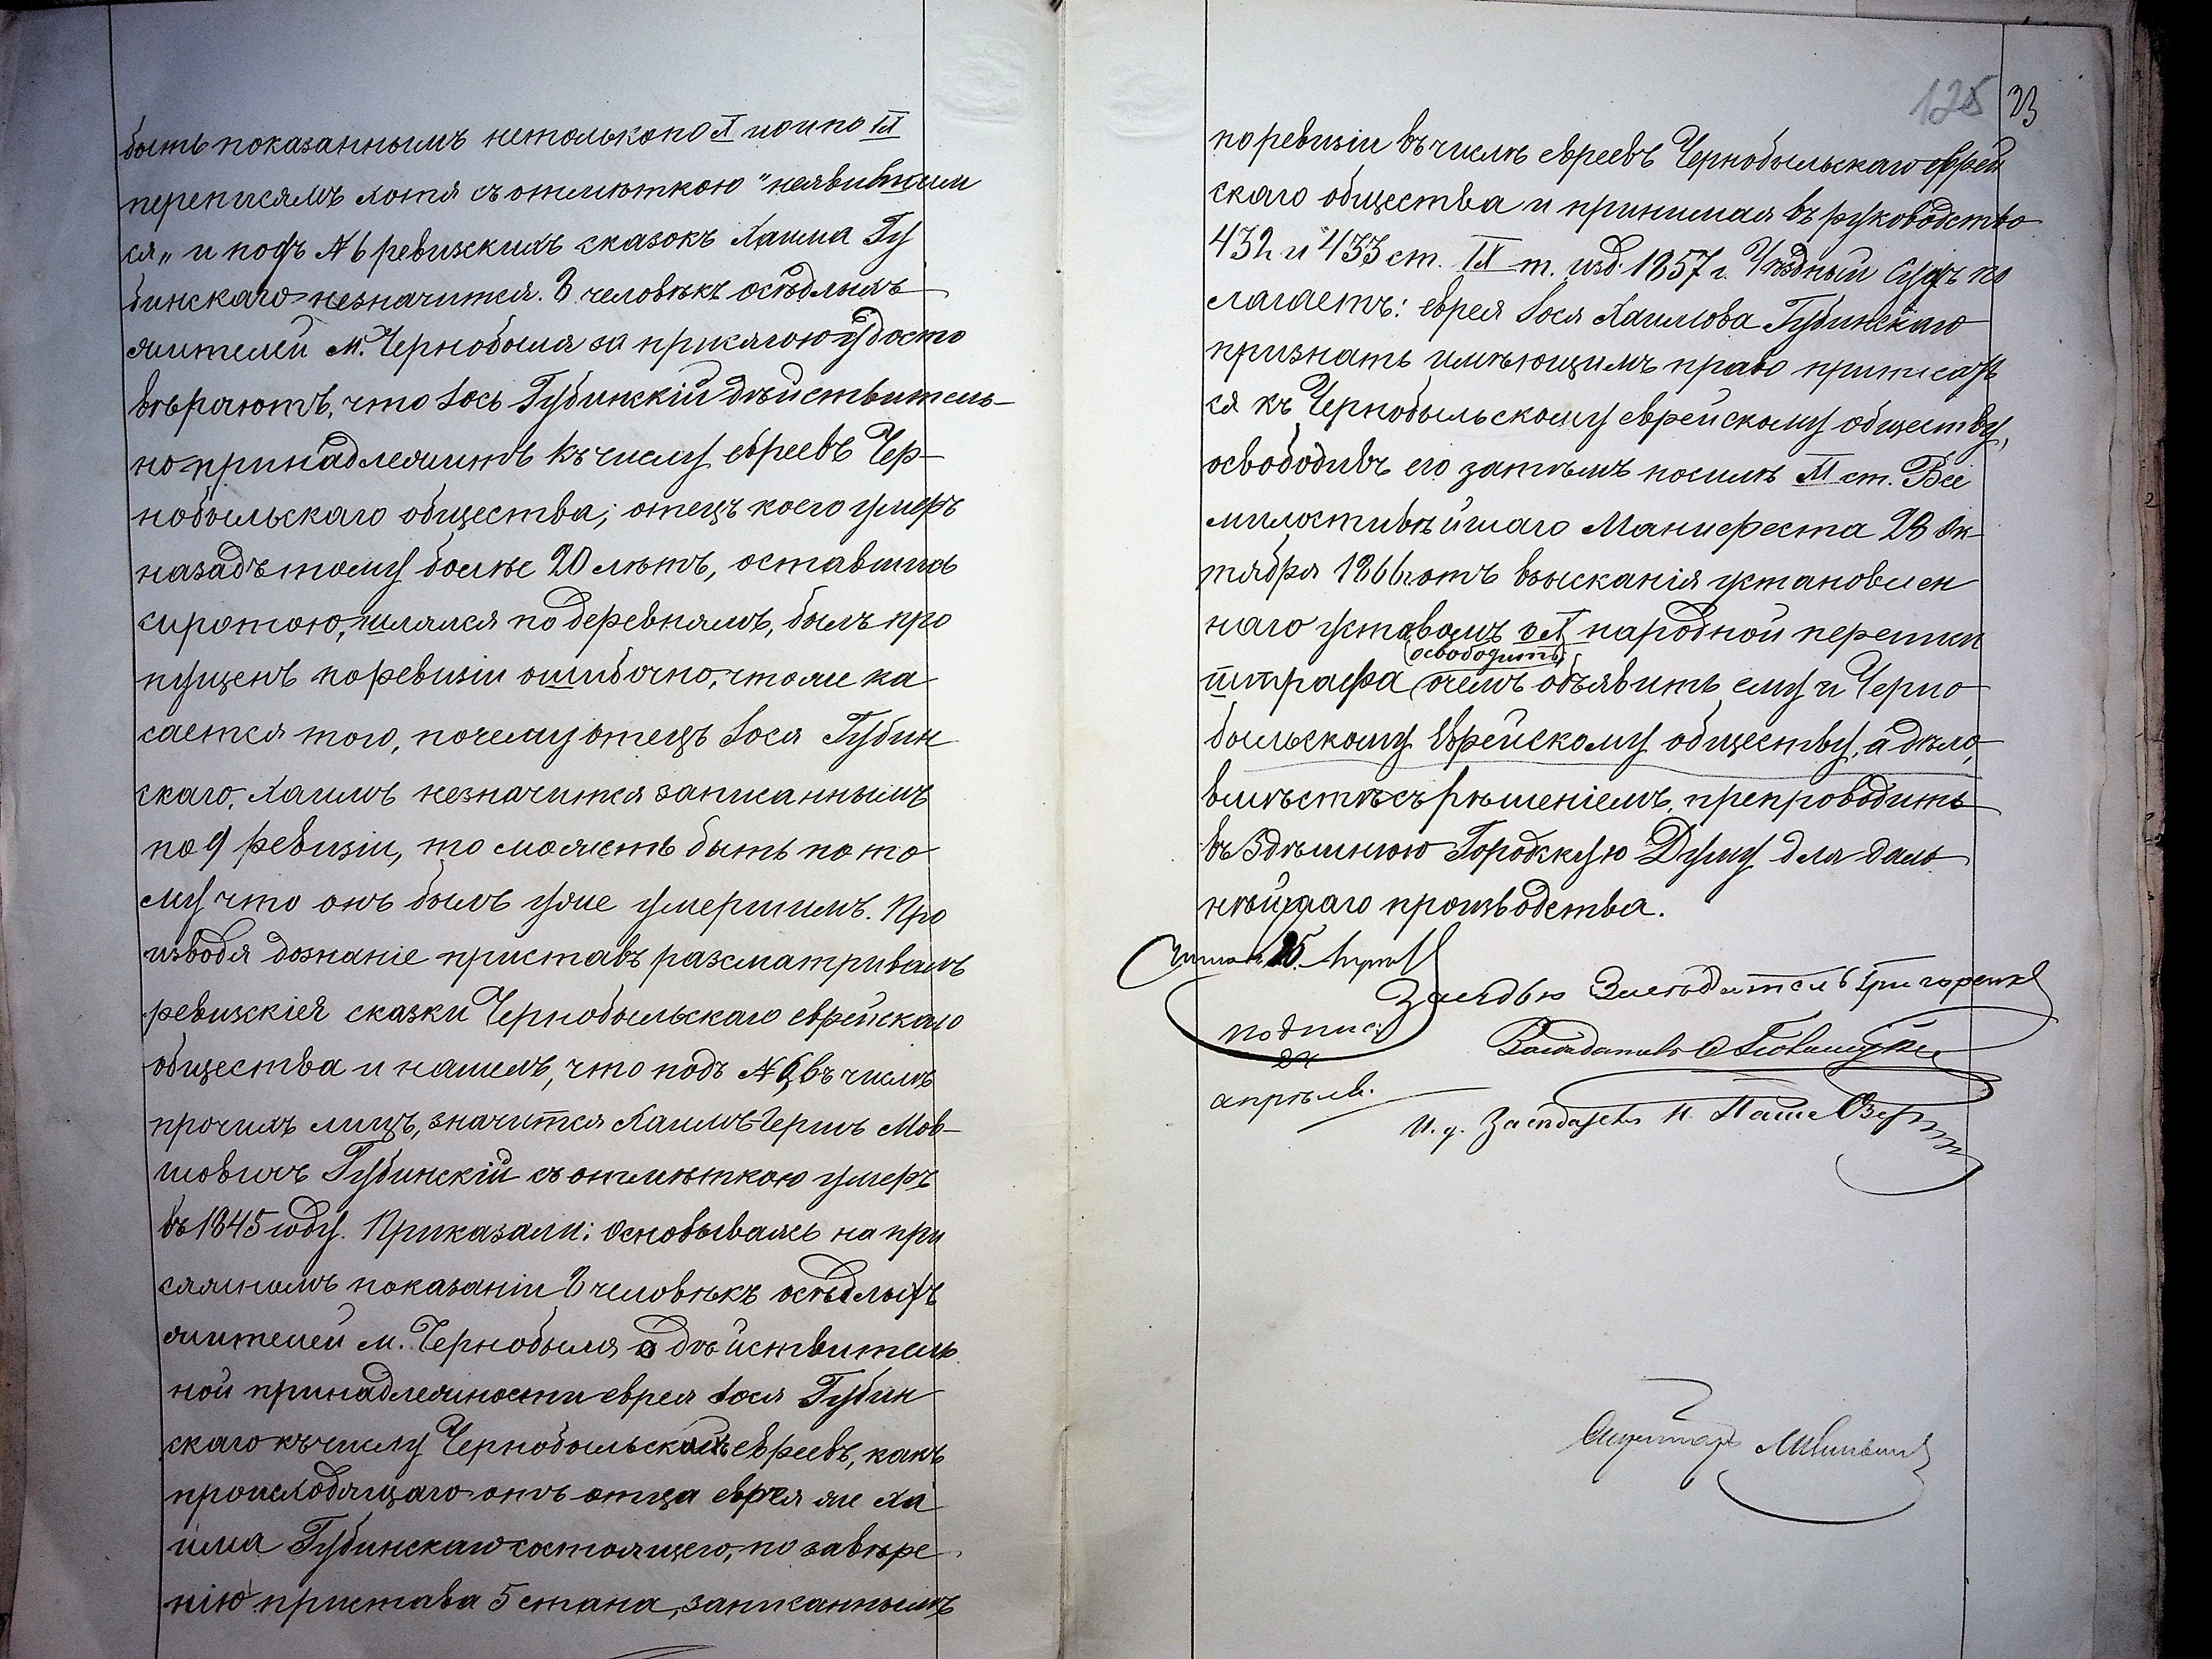 быть показаннымъ нетолько по X но и по IX
переписямъ хотя съ отмѣткою "неявившим
ся„ и подъ № 6 ревизскихъ сказокъ Хаима Гу
бинскаго незначится. 8 человѣкъ осѣдлыхъ
жителей м. Чернобыля за присягою удосто
вѣряютъ, что Іось Губинскій дѣйствитель-
но принадлежитъ къ числу евреевъ Чер-
нобыльскаго общества; отецъ коего умеръ
назадъ тому болѣе 20 лѣтъ, оставшись
сиротою, шлялся по деревнямъ, былъ про
пущенъ по ревизіи ошибочно, что же ка
сается того, почему отецъ Іося Губин
скаго, Хаимъ незначится записаннымъ
по 9 ревизіи, то можетъ быть по то
му что онъ былъ уже умершимъ. Про
изводя дознаніе приставъ разсматривалъ
ревизскія сказки Чернобыльскаго еврейскаго
общества и нашелъ, что подъ № 6 въ числѣ
прочихъ лицъ, значится Хаимъ-Гершъ Мов-
шовичъ Губинскій съ отмѣткою умеръ
въ 1845 году. Приказали: Основываясь на при
сяжномъ показаніи 8 человѣкъ осѣдлыхъ
жителей м. Чернобыля о дѣйствитель
ной принадлежности еврея Іося Губин
скаго къ числу Чернобыльскихъ евреевъ, какъ
происходящаго отъ отца еврея же Ха
има Губинскаго состоящего, по завѣре
нію пристава 5 стана, записаннымъ
125 23
по ревизіи въ числѣ евреевъ Чернобыльскаго еврей
скаго общества и принимая въ руководство
432 и 433 ст. IX т. изд. 1857 г. Уѣздный Судъ по
лагаетъ: еврея Іося Хаимова Губинскаго
признать имѣющимъ право приписать
ся къ Чернобыльскому еврейскому обществу,
освободивъ его затѣмъ по силѣ XI ст. Все
милостивѣйшаго Манифеста 28 Ок
тября 1866 г. отъ взысканія установлен
наго уставомъ о X народной переписи
(освободить)
штрафа, о чемъ объявить ему и Черно
быльскому Еврейскому обществу, а дѣло,
вмѣстѣ съ рѣшеніемъ, препроводить
въ Здѣшнюю Городскую Думу для даль
нѣйшаго производства.
25.
Засѣдатель Григоренко
Подпис.
24
Засѣдатель
апрѣля.
И. д. Засѣдателя
Секретарь